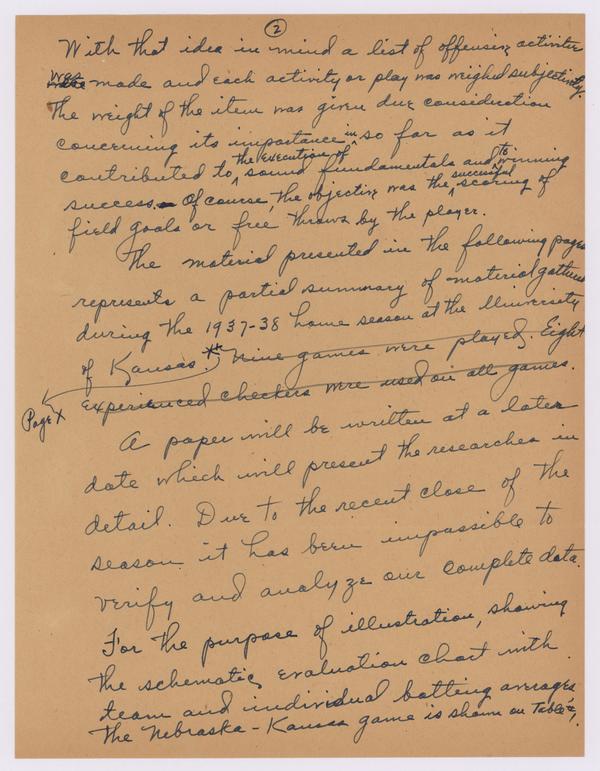 2
With that idea in mind a list of offensive activities
was made and each activity or play was weighed subjectively.
The weight of the item was given due consideration
concerning its importance in so far as it
contributed to the execution of sound fundamentals and to winning
success. Of course, the objective was the successful scoring of
field goals or free throws by the player.
The material presented in the following pages
represents a partial summary of material gathered
during the 1937-38 home season at the University
of Kansas.** Nine games were played. Eight
Page X experienced checkers were used on all games.
A paper will be written at a later
date which will present the researches in
detail. Due to the recent close of the
season it has been impassible to
verify and analyze our complete data.
For the purpose of illustration, showing
the schematic evaluation chart with
team and individual batting averages
The Nebraska-Kansas game is shown on Table